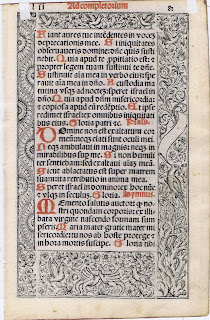 Ad completorium
Fiant aures tue intēdentes in vocē
deprecationis mee. Si iniquitates
observaveris domine: dñe quis susti
nebit. Quia apud te ppitiatio est: et
propter legem tuam sustinui te dñe.
Sustinuit aīa mea in verbo eius: spe
ravit aīa mea in dño. A custodia ma
tutina vsqȝ ad noctē: speret israel in
dño. Quia apud dñm misericordia:
et copiosa apud eū redēptio. Et ipse
redimet israel: ex omnibus iniquitati
bus eius. Gloria patri. Psalm⁹.
Domine non est exaltatum cor
meū: neqȝ elati sunt oculi mei.
Neqȝ ambulavi in magnis: neqȝ in
mirabilibus sup me. Si non humili
ter sentiebam: sed exaltavi aīaȝ meā.
Sicut ablactatus est super matrem
sua: ita retributio in anima mea.
Speret israel in domino: ex hoc nūc
et vsqȝ in seculuȝ. Gloria. Hymnus.
Memento salutis auctor: qȝ no
stri quondam corporis: ex illi
bata virgine nascendo formam sum
pseris. Maria mater gratie mater mi
sericordie: tu nos ab hoste protege et
in hora mortis suscipe. Gloria tibi